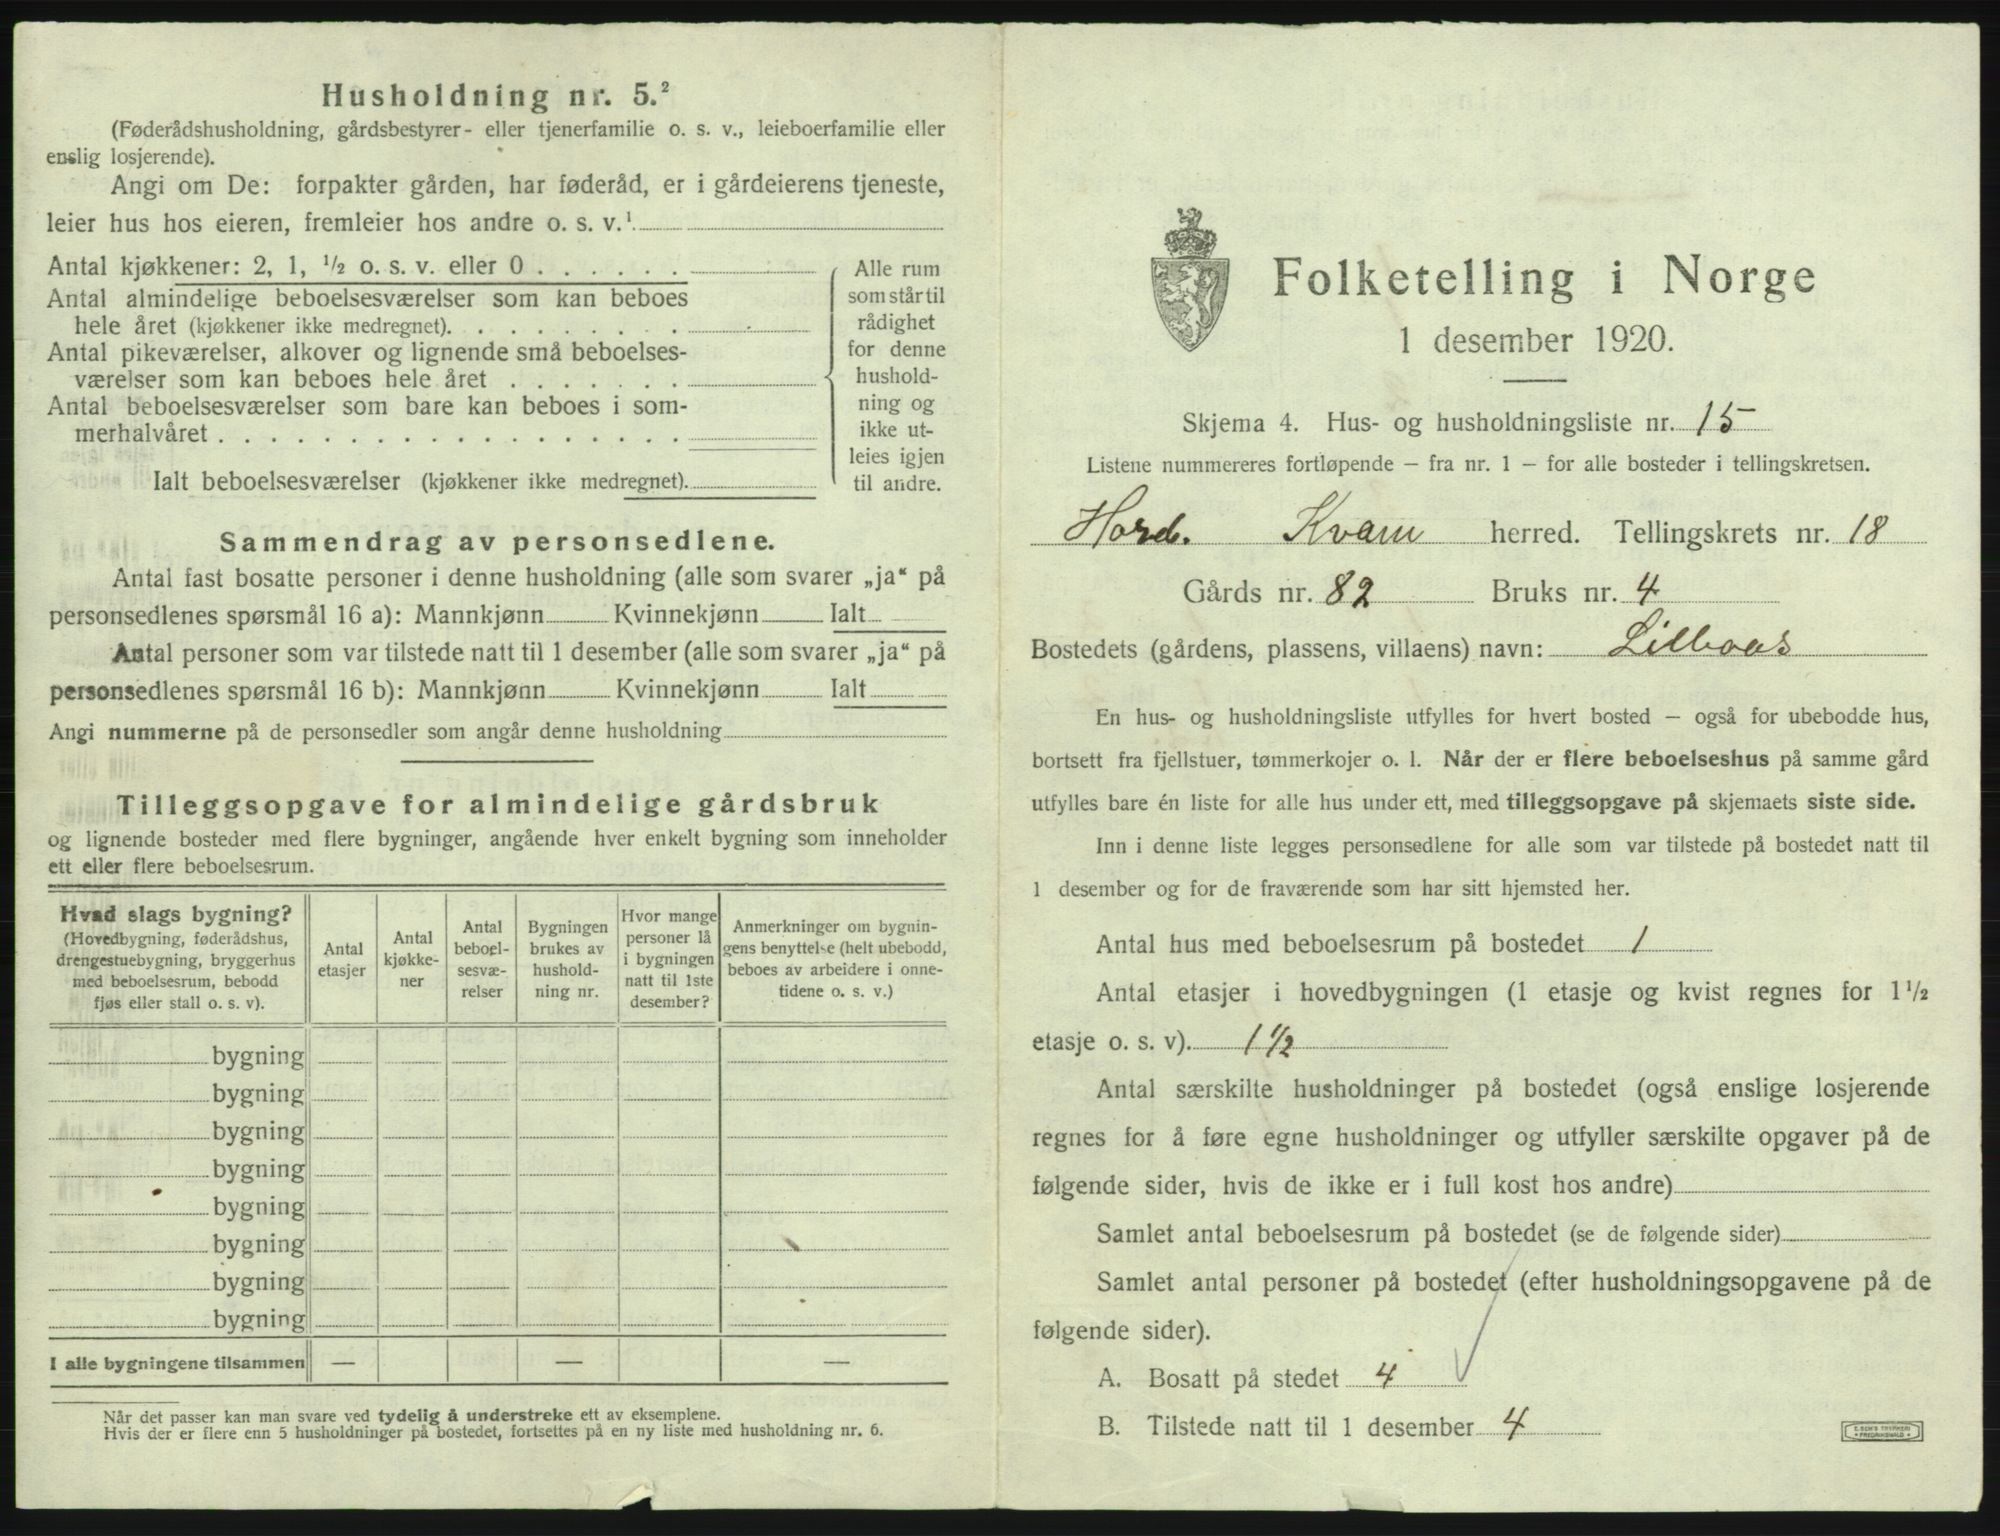 Husholdning nr. 5.²
(Føderådshusholdning, gårdsbestyrer- eller tjenerfamilie o. s. v., leieboerfamilie eller
enslig losjerende).
Angi om De: forpakter gården, har føderåd, er i gårdeierens tjeneste,
leier hus hos eieren, fremleier hos andre o. s. v.¹
Antal kjøkkener: 2, 1, ½ o. s. v. eller 0 . . . . . .
Antal almindelige beboelsesværelser som kan beboes
hele året (kjøkkener ikke medregnet). . . . . . . . .
Antal pikeværelser, alkover og lignende små beboelses-
værelser som kan beboes hele året . . . . . . .
Antal beboelsesværelser som bare kan beboes i som-
merhalvåret . . . . . . . . . . . . . . . . . .
Ialt beboelsesværelser (kjøkkener ikke medregnet).
Alle rum
som står til
rådighet
for denne
hushold-
ning og
ikke ut-
leies igjen
til andre.
Sammendrag av personsedlene.
Antal fast bosatte personer i denne husholdning (alle som svarer „ja“ på
personsedlenes spørsmål 16 a): Mannkjønn Kvinnekjønn Ialt
Antal personer som var tilstede natt til 1 desember (alle som svarer „ja“ på
personsedlenes spørsmål 16 b): Mannkjønn Kvinnekjønn Ialt
Angi nummerne på de personsedler som angår denne husholdning
Tilleggsopgave for almindelige gårdsbruk
og lignende bosteder med flere bygninger, angående hver enkelt bygning som inneholder
ett eller flere beboelsesrum.
Hvad slags bygning?
(Hovedbygning, føderådshus,
drengestuebygning, bryggerhus
med beboelsesrum, bebodd
fjøs eller stall o. s. v).
Antal
etasjer
Antal
kjøkke-
ner
Antal
beboel-
sesvæ-
relser
Bygningen
brukes av
hushold-
ning nr.
Hvor mange
personer lå
i bygningen
natt til 1ste
desember?
Anmerkninger om bygnin-
gens benyttelse (helt ubebodd,
beboes av arbeidere i onne-
tidene o. s. v.)
bygning
bygning
bygning
bygning
bygning
bygning
bygning
bygning
I alle bygningene tilsammen — — —
Når det passer kan man svare ved tydelig å understreke ett av eksemplene.
Hvis der er flere enn 5 husholdninger på bostedet, fortsettes på en ny liste med husholdning nr. 6.
Folketelling i Norge
1 desember 1920.
Skjema 4. Hus- og husholdningsliste nr. 15
Listene nummereres fortløpende — fra nr. 1 — for alle bosteder i tellingskretsen.
Hord. Kvam herred. Tellingskrets nr. 18
Gårds nr. 82 Bruks nr. 4
Bostedets (gårdens, plassens, villaens) navn: Lilleaas
En hus- og husholdningsliste utfylles for hvert bosted — også for ubebodde hus,
bortsett fra fjellstuer, tømmerkojer o. l. Når der er flere beboelseshus på samme gård
utfylles bare én liste for alle hus under ett, med tilleggsopgave på skjemaets siste side.
Inn i denne liste legges personsedlene for alle som var tilstede på bostedet natt til
1 desember og for de fraværende som har sitt hjemsted her.
Antal hus med beboelsesrum på bostedet 1
Antal etasjer i hovedbygningen (1 etasje og kvist regnes for 1½
etasje o. s. v). 1½
Antal særskilte husholdninger på bostedet (også enslige losjerende
regnes for å føre egne husholdninger og utfyller særskilte opgaver på de
følgende sider, hvis de ikke er i full kost hos andre)
Samlet antal beboelsesrum på bostedet (se de følgende sider)
Samlet antal personer på bostedet (efter husholdningsopgavene på de
følgende sider).
A. Bosatt på stedet 4
B. Tilstede natt til 1 desember 4